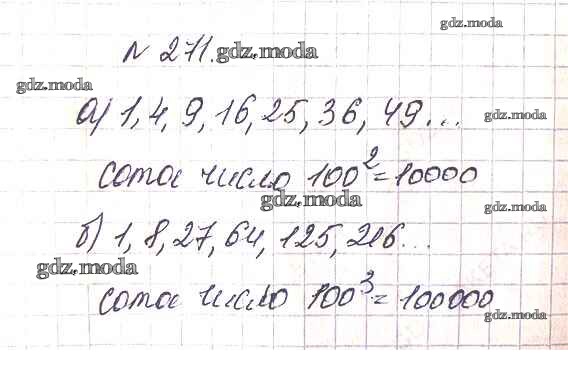 N 271.
gdz.moda
gdz.moda
gdz.moda
а) 1, 4, 9, 16, 25, 36, 49...
gdz.moda
сота число 100² = 10000
gdz.moda
gdz.moda
б) 1, 8, 27, 64, 125, 216...
gdz.moda
сота число 100³ = 100000
gdz.moda